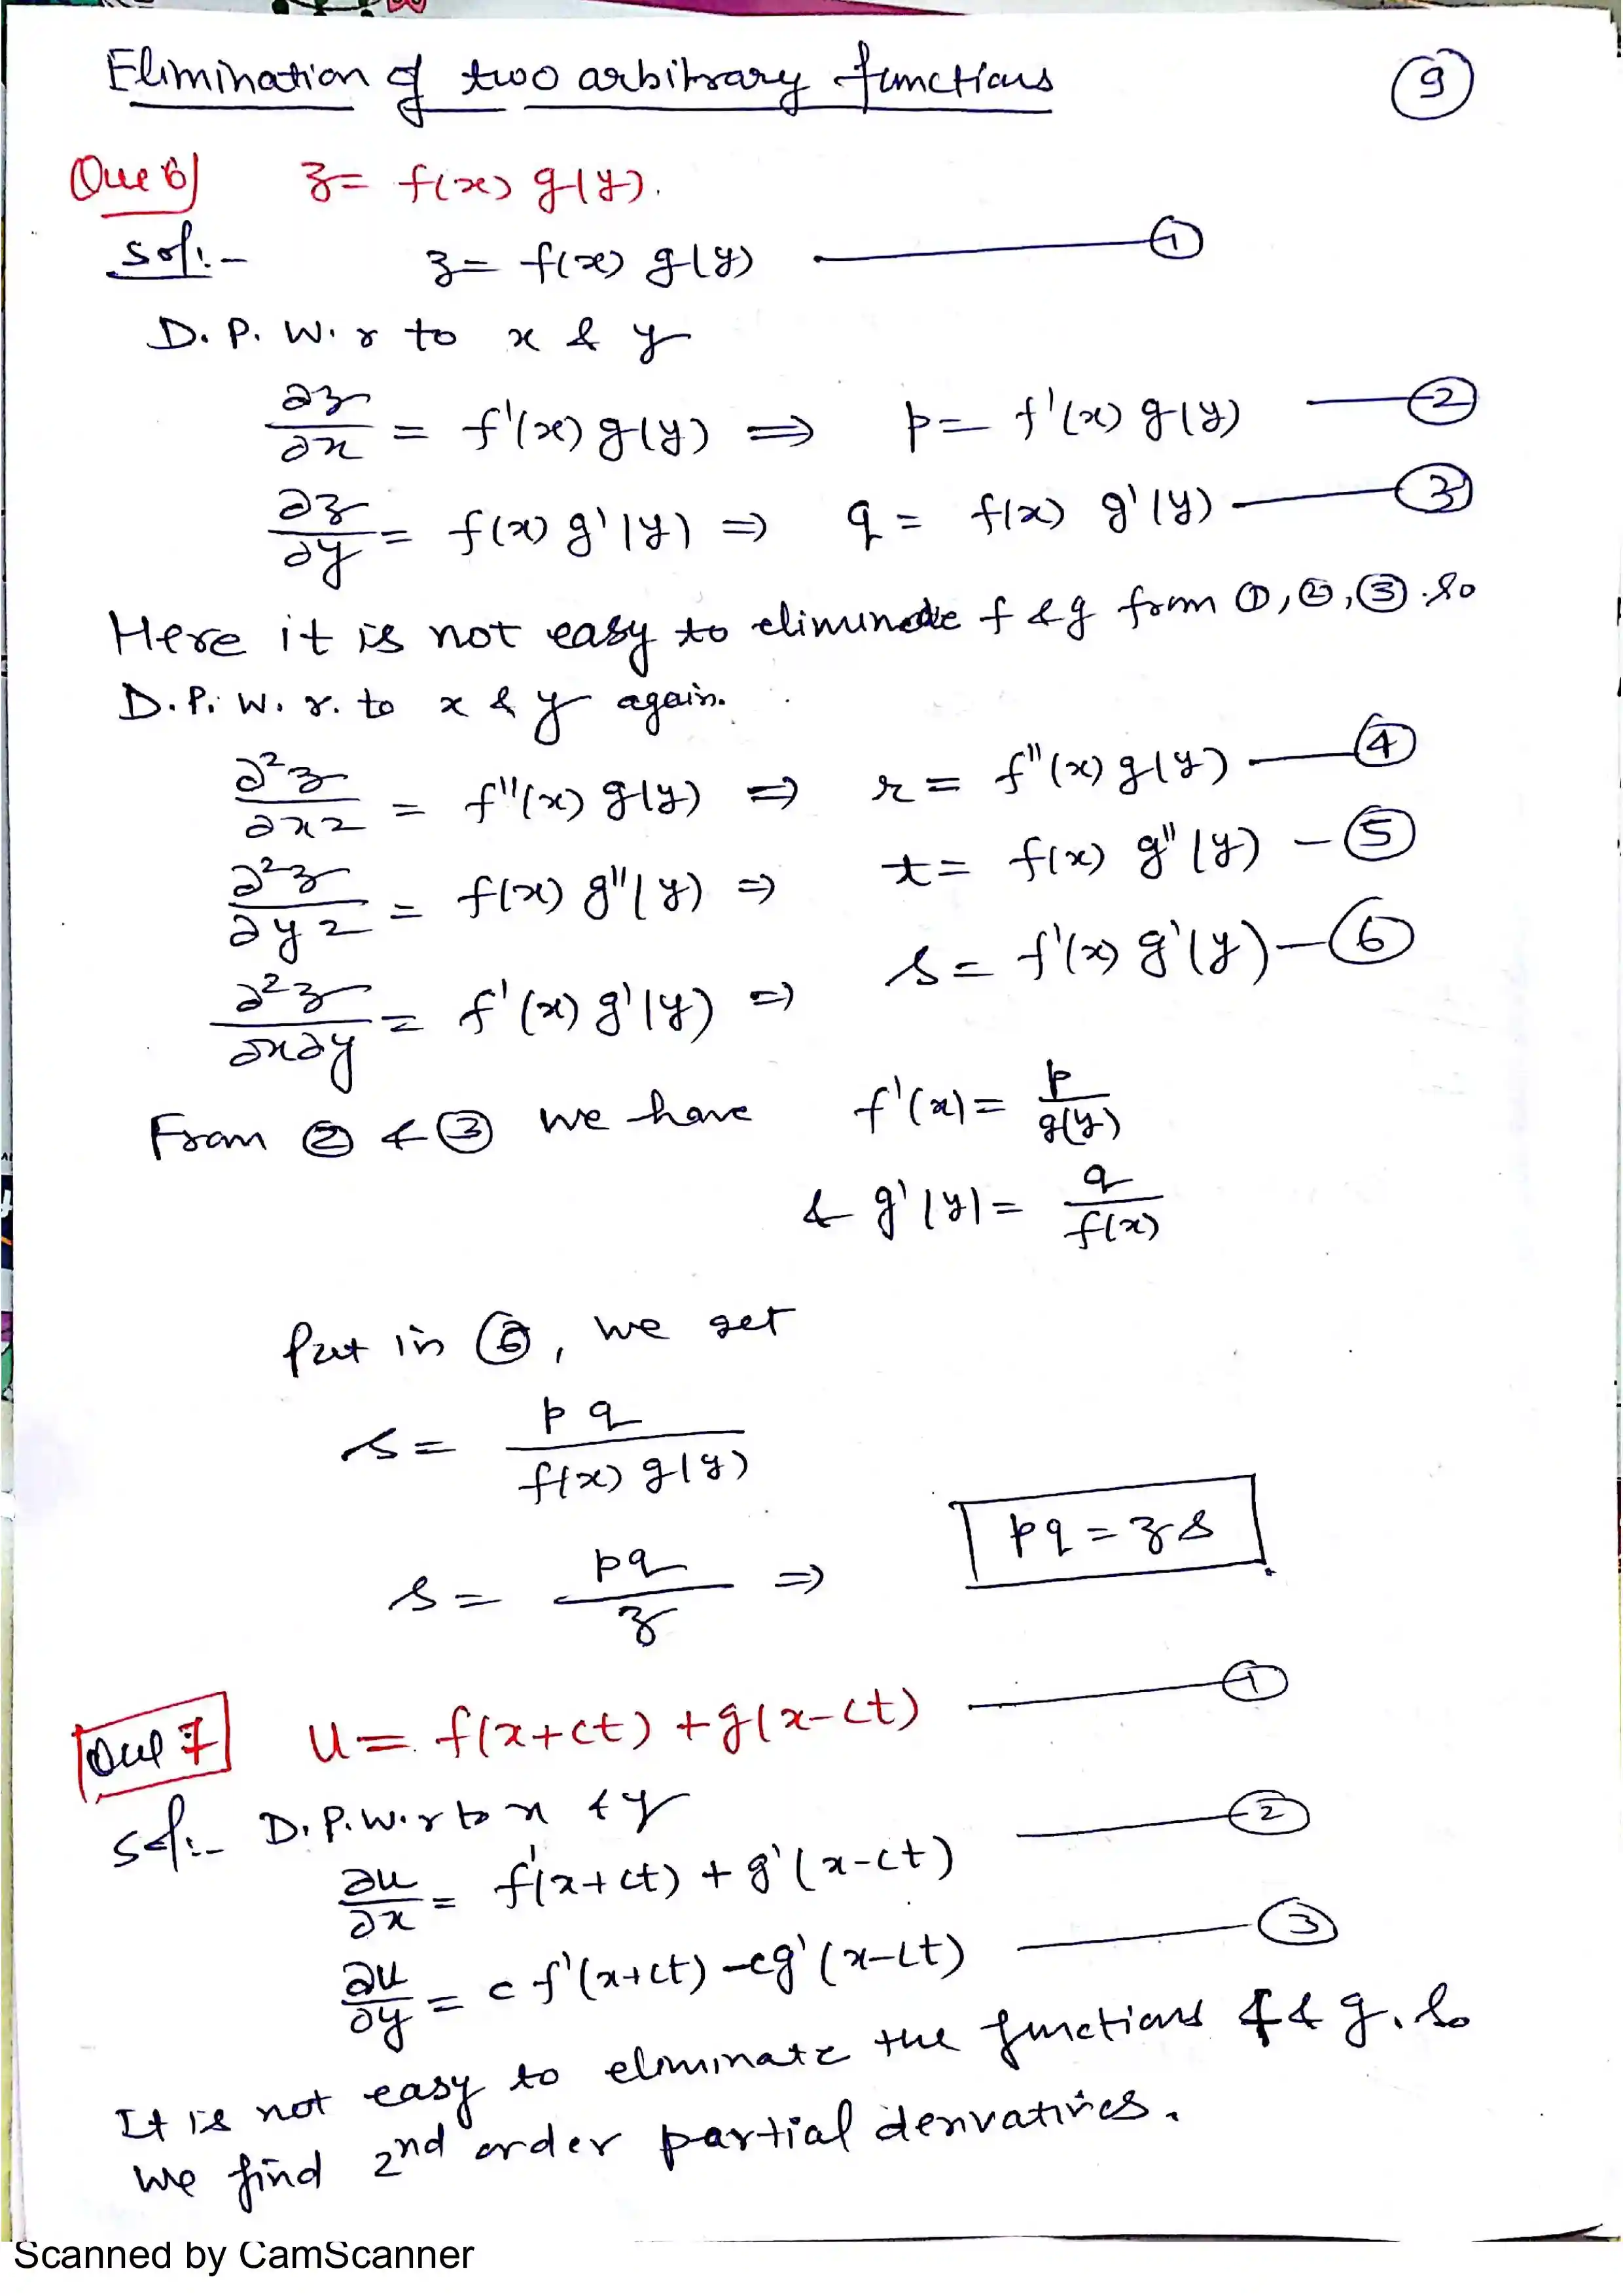 Elimination of two arbitrary functions
9
Que 6) z = f(x) g(y).
Sol:- z = f(x) g(y) — ①
D. P. W. r to x & y
∂z/∂x = f'(x) g(y) ⇒ p = f'(x) g(y) — ②
∂z/∂y = f(x) g'(y) ⇒ q = f(x) g'(y) — ③
Here it is not easy to eliminate f & g from ①, ②, ③. So
D. P. W. r. to x & y again.
∂²z/∂x² = f''(x) g(y) ⇒ r = f''(x) g(y) — ④
∂²z/∂y² = f(x) g''(y) ⇒ t = f(x) g''(y) — ⑤
∂²z/∂x∂y = f'(x) g'(y) ⇒ s = f'(x) g'(y) — ⑥
From ② & ③ we have f'(x) = p/g(y)
& g'(y) = q/f(x)
Put in ⑥, we get
s = pq/f(x) g(y)
s = pq/z ⇒ pq = zs
Que 7 u = f(x+ct) + g(x-ct) — ①
Sol:- D. P. W. r to x & y
∂u/∂x = f'(x+ct) + g'(x-ct) — ②
∂u/∂y = c f'(x+ct) - cg'(x-ct) — ③
It is not easy to eliminate the functions f & g. So
we find 2nd order partial derivatives.
Scanned by CamScanner